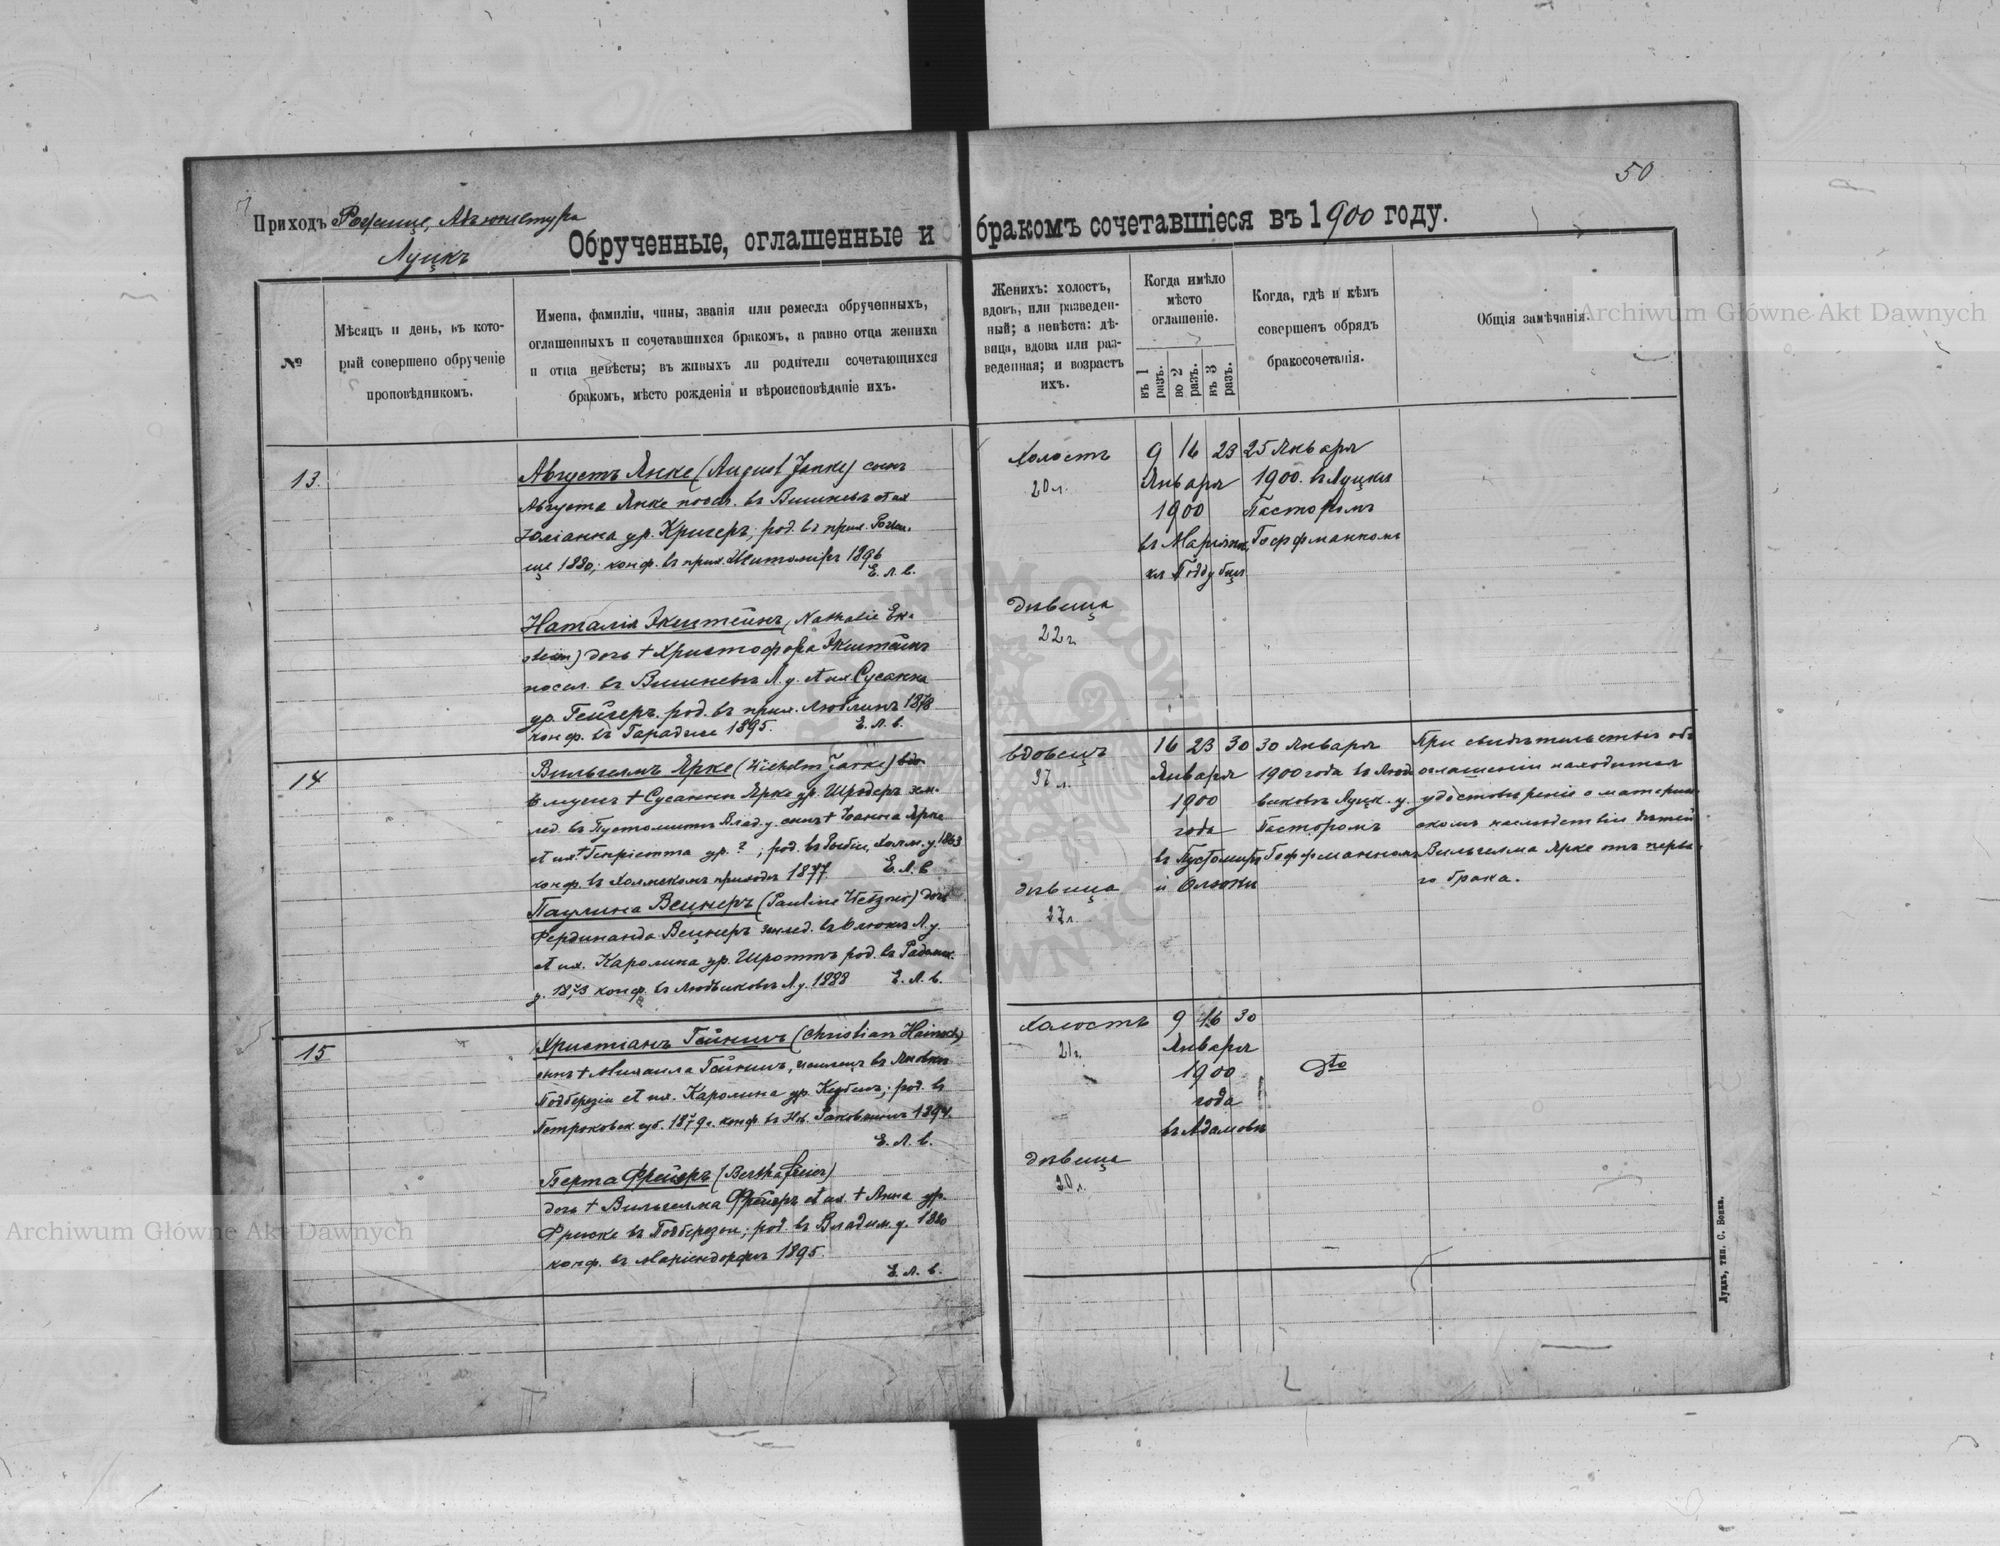 50
Приходъ Рожище, Адъюнктура
Луцкъ
Обрученные, оглашенные и бракомъ сочетавшіеся въ 1900 году.
№
Мѣсяцъ и день, въ кото-
рый совершено обрученіе
проповѣдникомъ.
Имена, фамиліи, чины, званія или ремесла обрученныхъ,
оглашенныхъ и сочетавшихся бракомъ, а равно отца жениха
и отца невѣсты; въ живыхъ ли родители сочетающихся
бракомъ, мѣсто рожденія и вѣроисповѣданіе ихъ.
Женихъ: холостъ,
вдовъ, или разведен-
ный; а невѣста: дѣ-
вица, вдова или раз-
веденная; и возрастъ
ихъ.
Когда имѣло
мѣсто
оглашеніе.
въ 1 разъ.
во 2 разъ.
въ 3 разъ.
Когда, гдѣ и кѣмъ
совершенъ обрядъ
бракосочетанія.
Общія замѣчанія.
13.
Августъ Янке (August Janke) сынъ
Августа Янке посел. въ Вишневѣ et ux
Юліанна ур. Кригеръ, род. въ прих. Рожи-
ще 1880; конф. въ прих. Житоміръ 1896
Е. Л. в.
Наталія Экштейнъ (Nathalie Ek-
stein) дочь † Христофора Экштейнъ
посел. въ Вишневѣ Л. у. et ux Сусанна
ур. Гейгеръ. род. въ прих. Люблинъ 1878
конф. въ 1895. Е. Л. в.
Холостъ
20 л.
дѣвица
22 г.
9 16 23
Января
1900
въ
25 Января
1900. въ Луцкѣ
Пасторомъ
Гоффманномъ
14
Вильгельмъ Ярке (Wilhelm Jarke) вдо-
вецъ † Сусанны Ярке ур. Шредеръ зем-
лед. въ Пустомытѣ Влад. у. сынъ † Іоанна Ярке
et ux † Генріетта ур. ? ; род. въ Холм. у. 1863
конф. въ Холмскомъ приходѣ 1877 Е. Л. в
Паулина Вецнеръ (Pauline Wetzner) дочь
Фердинанда Вецнеръ землед. въ Олюкѣ Л. у.
et ux. Каролина ур. Шроттъ род. въ Радомск.
у. 1873 конф. въ Людвиковѣ Л у. 1888 Е. Л. в.
вдовецъ
37 л.
дѣвица
27 л.
16 23 30
Января
1900
года
въ Пустомытѣ
и Олюки
30 Января
1900 года въ Люд-
виковѣ Луцк. у.
Пасторомъ
Гоффманномъ
При свидѣтельствѣ объ
оглашеніи находится
удостовѣреніе о материн-
скомъ наслѣдствіи дѣтей
Вильгельма Ярке отъ перва-
го брака.
15
Христіанъ Гейнихъ (Christian Hainich)
сынъ † Михаила Гейнихъ, въ Яновкѣ
Подберезіи et ux. Каролина ур. род. въ
Петроковск. губ. 1879 г. конф. въ 1894.
Е. Л. в.
Берта Фрейеръ (Bertha Freier)
дочь † Вильгельма Фрейеръ et ux. † Анна ур.
Фриске въ Подберезіи; род. въ Владим. у. 1880
конф. въ Маріендорфѣ 1895.
Е. Л. в.
Холостъ
21 г.
дѣвица
20 л.
9 16 30
Января
1900
года
въ Адамовѣ
dto
Луцкъ, тип. С. Бонка.
Archiwum Główne Akt Dawnych
Archiwum Główne Akt Dawnych